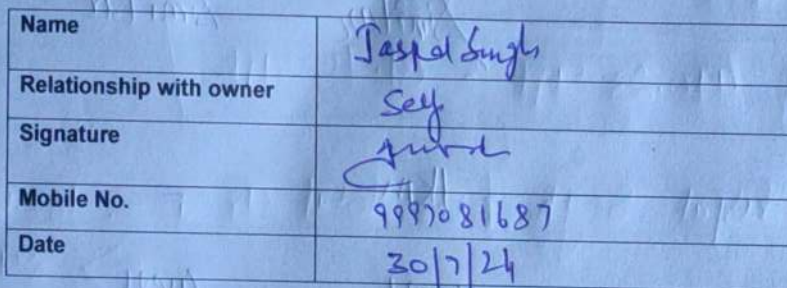 Name Jaspal Singh
Relationship with owner Self
Signature
Mobile No. 9997081687
Date 30/7/24